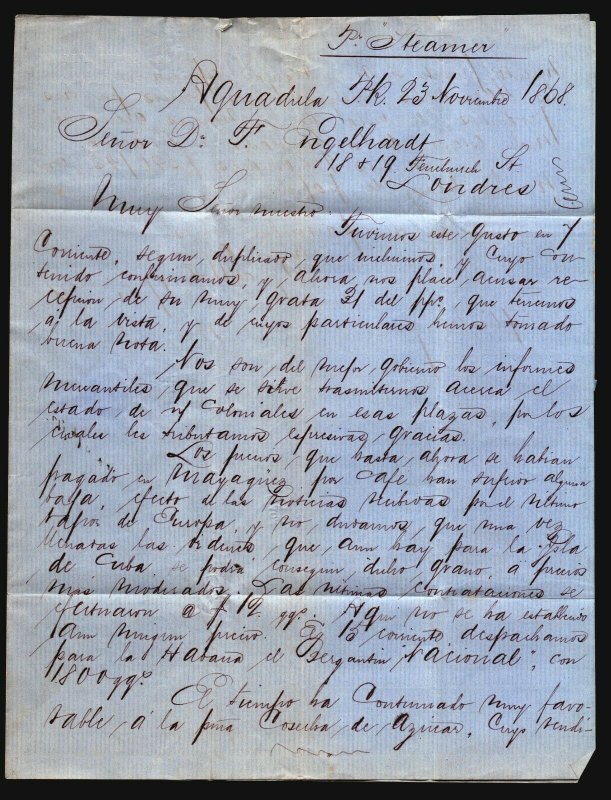 Pr "Steamer"
Aguadilla P.R. 23 Noviembre 1868.
Señor Dn F. Engelhardt
18 & 19 Fenchurch St
Londres
Muy Señor nuestro:
Tuvimos este gusto en 7
Corriente, segun, duplicado, que incluimos, y cuyo con-
tenido confirmamos, y ahora nos place acusar re-
cepcion, de su muy, grata 31 del ppo, que tenemos
a la vista, y de cuyos particulares hemos tomado
buena nota.
Nos son, del mejor, gobierno los informes
mercantiles, que se sirve trasmitirnos acerca el
estado, de n/ Coloniales en esas plazas, por los
cuales les tributamos, espresivas, gracias.
Los precios, que hasta, ahora se habian
pagado en Mayagüez por Café han sufrido alguna
baja, efecto de las noticias recibidas por el ultimo
vapor de Europa, y no, dudamos, que una vez
llenadas las ordenes, que, aun hay para la Isla
de Cuba se podrá conseguir dicho grano, a precios
mas moderados. Las ultimas contrataciones se
efectuaron a $ 12 qqs. Aqui no se ha establecido
aun ningun precio. El 15 corriente despachamos
para la Habana el Bergantin "Nacional", con
1800 qqs
El tiempo ha Continuado muy favo-
rable, á la pma Cosecha, de Azúcar, Cuyo rendi-